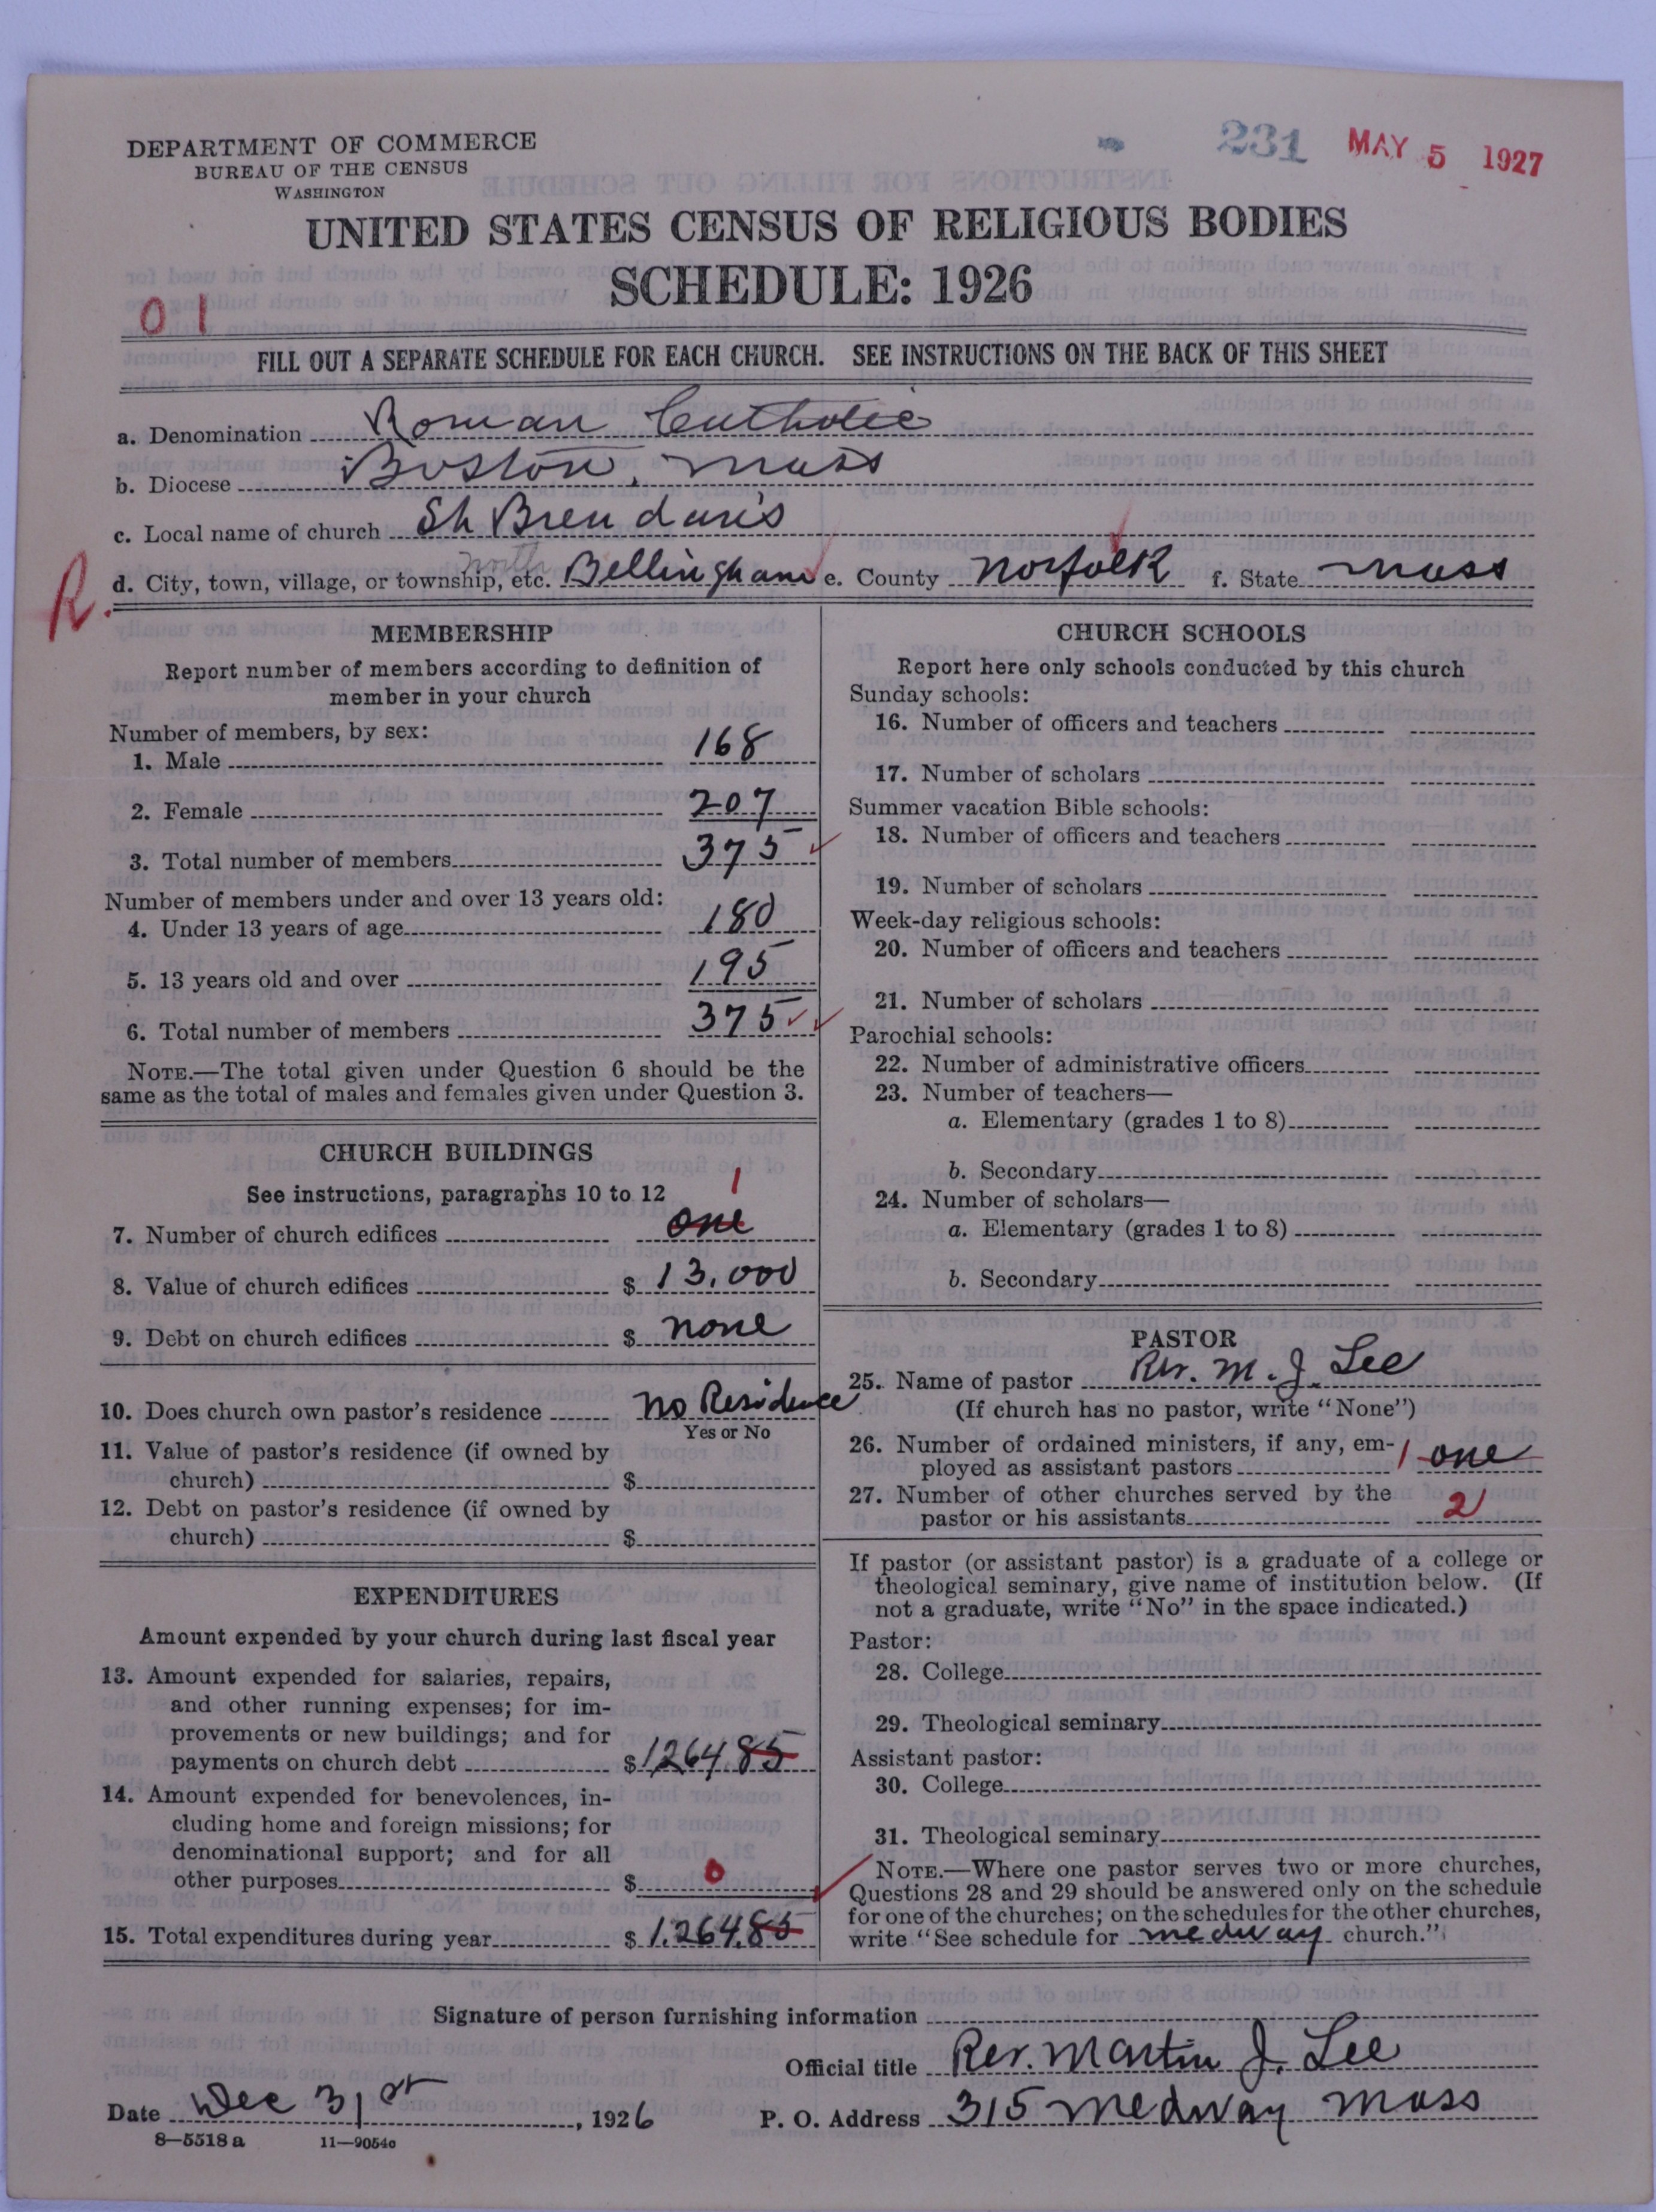 DEPARTMENT OF COMMERCE
BUREAU OF THE CENSUS
WASHINGTON
231 MAY 5 1927
UNITED STATES CENSUS OF RELIGIOUS BODIES
SCHEDULE: 1926
01
FILL OUT A SEPARATE SCHEDULE FOR EACH CHURCH. SEE INSTRUCTIONS ON THE BACK OF THIS SHEET
a. Denomination Roman Catholic
b. Diocese Boston, Mass
c. Local name of church St Brendan's
north
d. City, town, village, or township, etc. Bellingham e. County Norfolk f. State Mass
R.
MEMBERSHIP
Report number of members according to definition of
member in your church
Number of members, by sex:
1. Male 168
2. Female 207
3. Total number of members 375
Number of members under and over 13 years old:
4. Under 13 years of age 180
5. 13 years old and over 195
6. Total number of members 375
NOTE.—The total given under Question 6 should be the
same as the total of males and females given under Question 3.
CHURCH BUILDINGS
See instructions, paragraphs 10 to 12
1
7. Number of church edifices one
8. Value of church edifices $ 13,000
9. Debt on church edifices $ none
10. Does church own pastor's residence no Residence
Yes or No
11. Value of pastor's residence (if owned by
church) $
12. Debt on pastor's residence (if owned by
church) $
EXPENDITURES
Amount expended by your church during last fiscal year
13. Amount expended for salaries, repairs,
and other running expenses; for im-
provements or new buildings; and for
payments on church debt $ 1264.85
14. Amount expended for benevolences, in-
cluding home and foreign missions; for
denominational support; and for all
other purposes $ 0
15. Total expenditures during year $ 1,264.85
CHURCH SCHOOLS
Report here only schools conducted by this church
Sunday schools:
16. Number of officers and teachers
17. Number of scholars
Summer vacation Bible schools:
18. Number of officers and teachers
19. Number of scholars
Week-day religious schools:
20. Number of officers and teachers
21. Number of scholars
Parochial schools:
22. Number of administrative officers
23. Number of teachers—
a. Elementary (grades 1 to 8)
b. Secondary
24. Number of scholars—
a. Elementary (grades 1 to 8)
b. Secondary
PASTOR
25. Name of pastor Rev. M. J. Lee
(If church has no pastor, write "None")
26. Number of ordained ministers, if any, em-
ployed as assistant pastors 1 one
27. Number of other churches served by the
pastor or his assistants 2
If pastor (or assistant pastor) is a graduate of a college or
theological seminary, give name of institution below. (If
not a graduate, write "No" in the space indicated.)
Pastor:
28. College
29. Theological seminary
Assistant pastor:
30. College
31. Theological seminary
NOTE.—Where one pastor serves two or more churches,
Questions 28 and 29 should be answered only on the schedule
for one of the churches; on the schedules for the other churches,
write "See schedule for medway church."
Signature of person furnishing information
Official title Rev. Martin J. Lee
Date Dec 31st, 1926 P. O. Address 315 Medway Mass
8—5518a 11—9054c